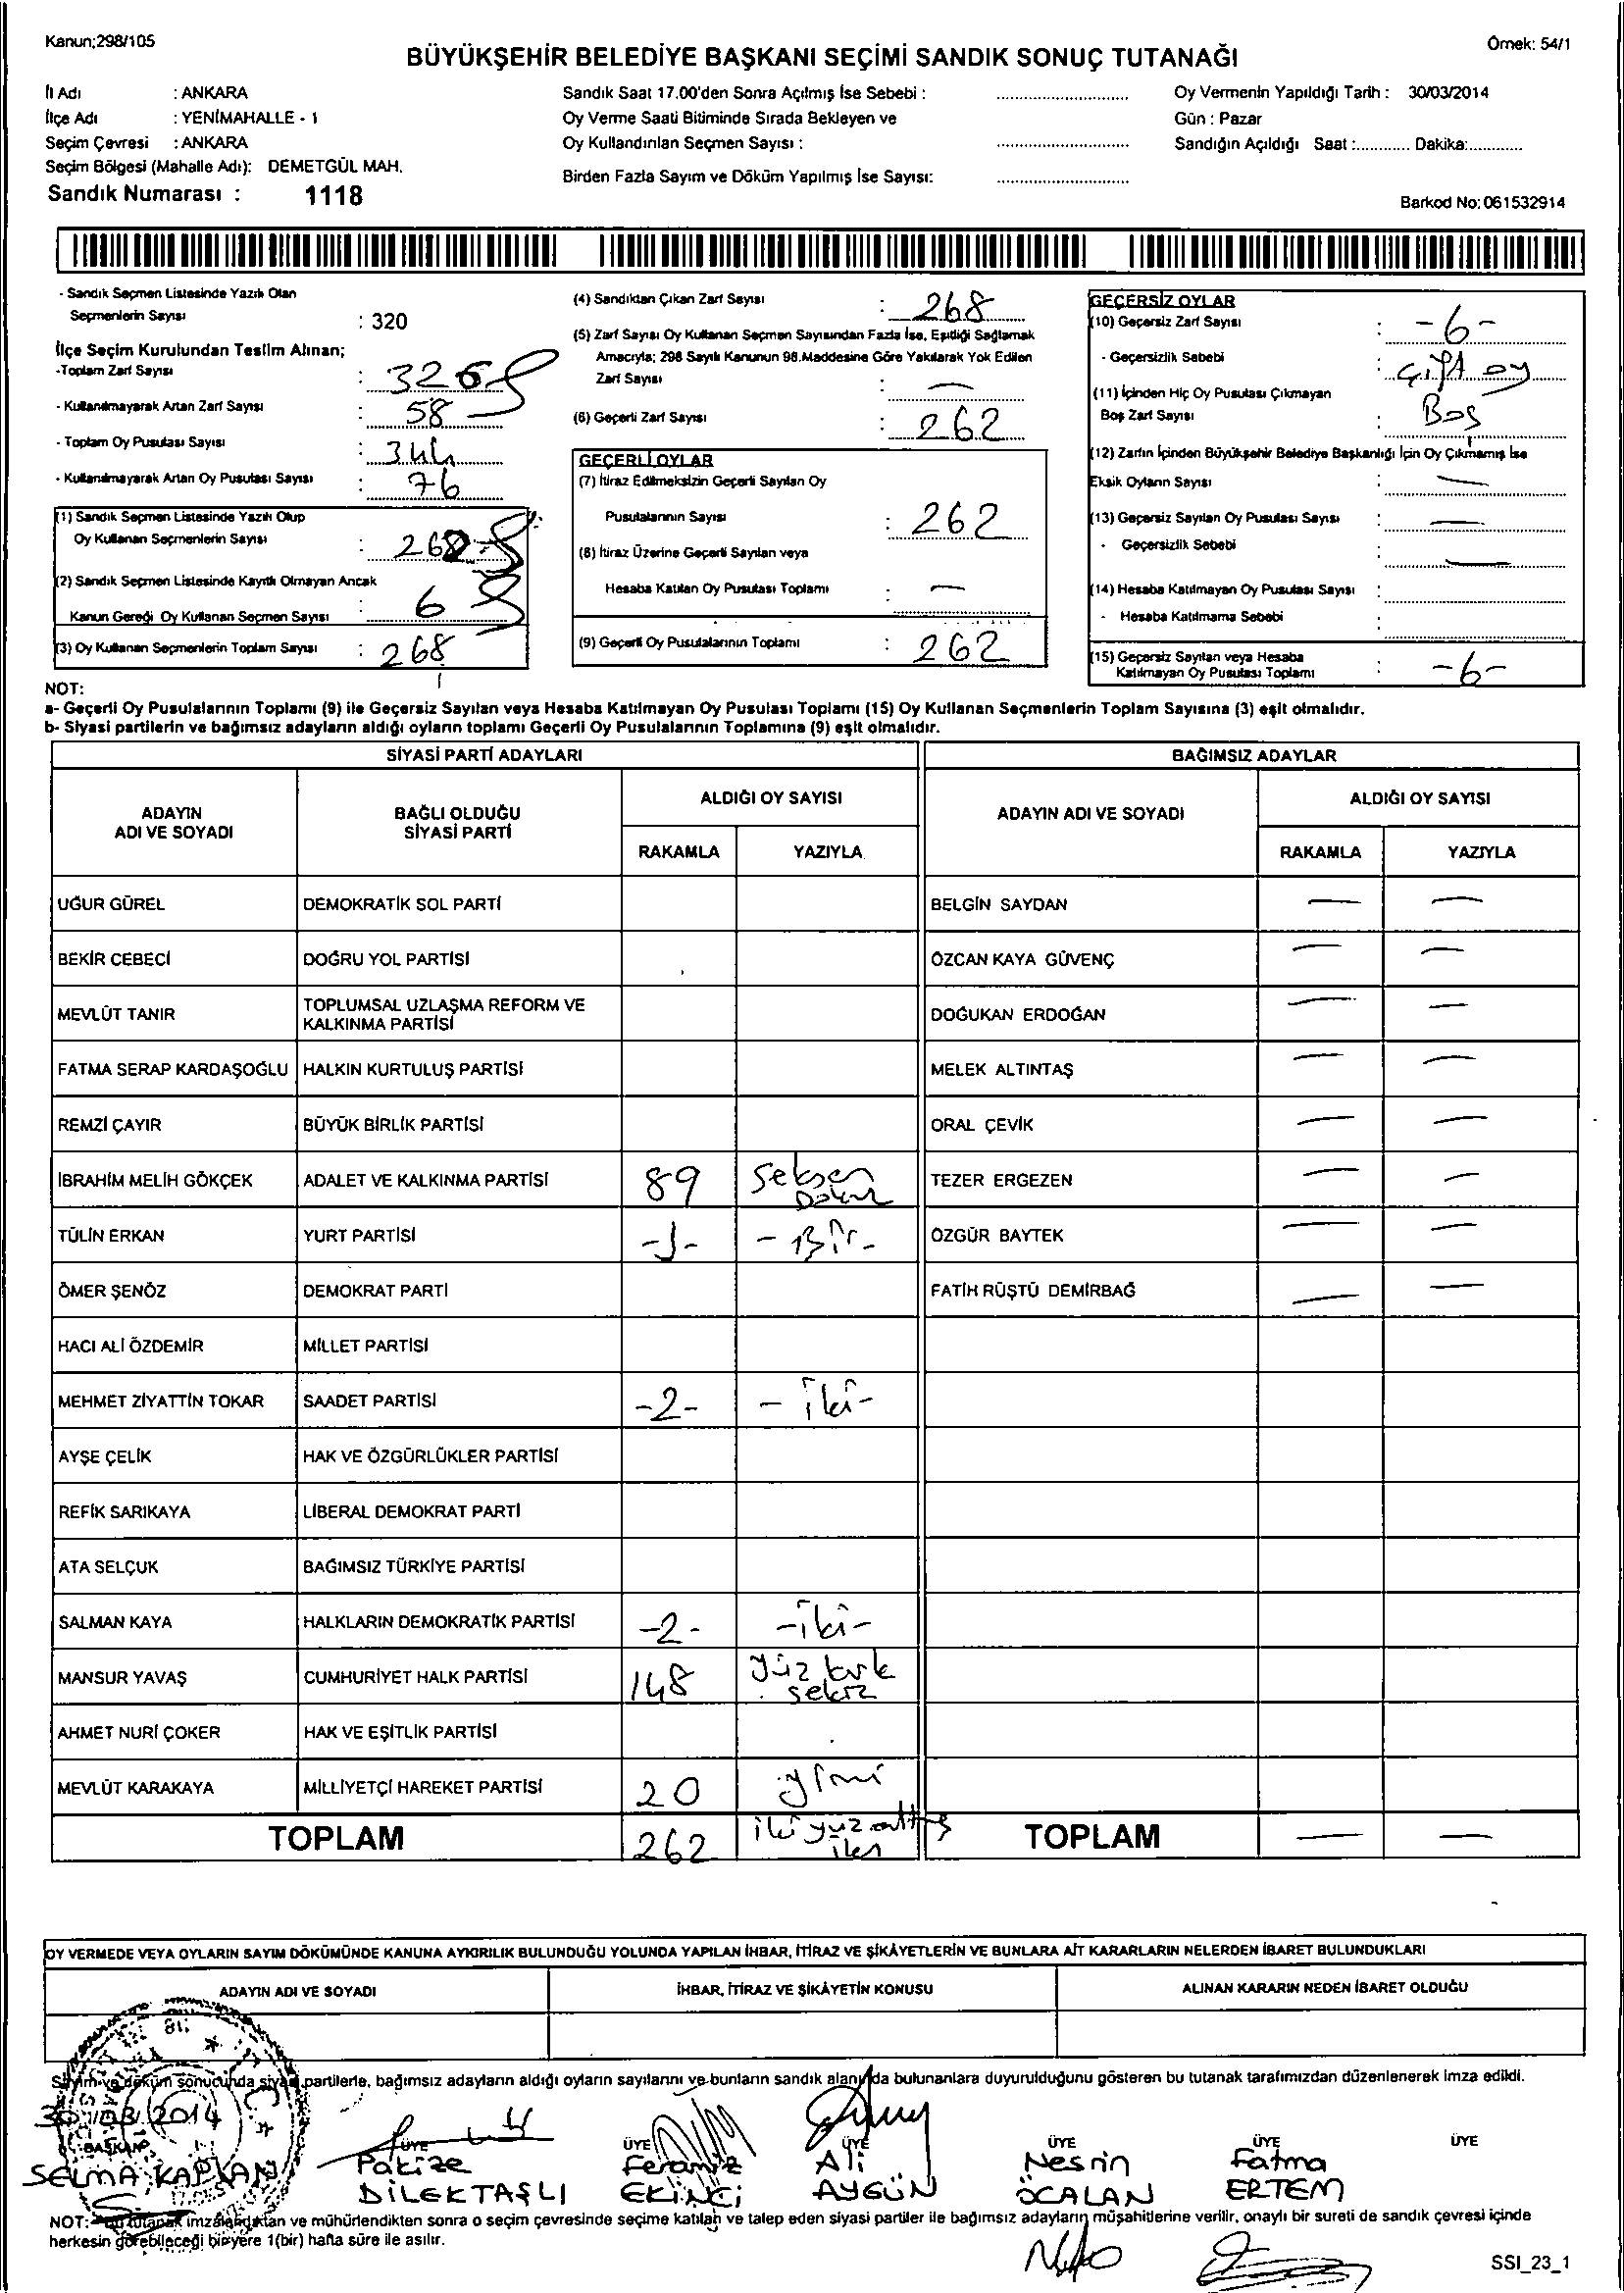 Kanun;298/105
Örnek: 54/1
BÜYÜKŞEHİR BELEDİYE BAŞKANI SEÇİMİ SANDIK SONUÇ TUTANAĞI
İl Adı : ANKARA
İlçe Adı : YENİMAHALLE - 1
Seçim Çevresi : ANKARA
Seçim Bölgesi (Mahalle Adı): DEMETGÜL MAH.
Sandık Numarası : 1118
Sandık Saat 17.00'den Sonra Açılmış İse Sebebi :
Oy Verme Saati Bitiminde Sırada Bekleyen ve
Oy Kullandırılan Seçmen Sayısı :
Birden Fazla Sayım ve Döküm Yapılmış İse Sayısı:
Oy Vermenin Yapıldığı Tarih : 30/03/2014
Gün : Pazar
Sandığın Açıldığı Saat :............ Dakika:............
Barkod No: 061532914
- Sandık Seçmen Listesinde Yazılı Olan
Seçmenlerin Sayısı : 320
İlçe Seçim Kurulundan Teslim Alınan;
-Toplam Zarf Sayısı : 326
- Kullanılmayarak Artan Zarf Sayısı : 58
- Toplam Oy Pusulası Sayısı : 344
- Kullanılmayarak Artan Oy Pusulası Sayısı : 76
(1) Sandık Seçmen Listesinde Yazılı Olup
Oy Kullanan Seçmenlerin Sayısı :
(2) Sandık Seçmen Listesinde Kayıtlı Olmayan Ancak
Kanun Gereği Oy Kullanan Seçmen Sayısı : 6
(3) Oy Kullanan Seçmenlerin Toplam Sayısı : 268
(4) Sandıktan Çıkan Zarf Sayısı : 268
(5) Zarf Sayısı Oy Kullanan Seçmen Sayısından Fazla İse, Eşitliği Sağlamak
Amacıyla; 298 Sayılı Kanunun 98.Maddesine Göre Yakılarak Yok Edilen
Zarf Sayısı : —
(6) Geçerli Zarf Sayısı : 262
GEÇERLİ OYLAR
(7) İtiraz Edilmeksizin Geçerli Sayılan Oy
Pusulalarının Sayısı : 262
(8) İtiraz Üzerine Geçerli Sayılan veya
Hesaba Katılan Oy Pusulası Toplamı : —
(9) Geçerli Oy Pusulalarının Toplamı : 262
GEÇERSİZ OYLAR
(10) Geçersiz Zarf Sayısı : -6-
- Geçersizlik Sebebi : ÇİFT OY
(11) İçinden Hiç Oy Pusulası Çıkmayan
Boş Zarf Sayısı : BOŞ
(12) Zarfın İçinden Büyükşehir Belediye Başkanlığı İçin Oy Çıkmamış İse
Eksik Oyların Sayısı : —
(13) Geçersiz Sayılan Oy Pusulası Sayısı : —
- Geçersizlik Sebebi : —
(14) Hesaba Katılmayan Oy Pusulası Sayısı :
- Hesaba Katılmama Sebebi :
(15) Geçersiz Sayılan veya Hesaba
Katılmayan Oy Pusulası Toplamı : -6-
NOT:
a- Geçerli Oy Pusulalarının Toplamı (9) ile Geçersiz Sayılan veya Hesaba Katılmayan Oy Pusulası Toplamı (15) Oy Kullanan Seçmenlerin Toplam Sayısına (3) eşit olmalıdır.
b- Siyasi partilerin ve bağımsız adayların aldığı oyların toplamı Geçerli Oy Pusulalarının Toplamına (9) eşit olmalıdır.
SİYASİ PARTİ ADAYLARI BAĞIMSIZ ADAYLAR
ADAYIN ADI VE SOYADI BAĞLI OLDUĞU SİYASİ PARTİ ALDIĞI OY SAYISI ADAYIN ADI VE SOYADI ALDIĞI OY SAYISI
RAKAMLA YAZIYLA RAKAMLA YAZIYLA
UĞUR GÜREL DEMOKRATİK SOL PARTİ BELGİN SAYDAN — —
BEKİR CEBECİ DOĞRU YOL PARTİSİ ÖZCAN KAYA GÜVENÇ — —
MEVLÜT TANIR TOPLUMSAL UZLAŞMA REFORM VE KALKINMA PARTİSİ DOĞUKAN ERDOĞAN — —
FATMA SERAP KARDAŞOĞLU HALKIN KURTULUŞ PARTİSİ MELEK ALTINTAŞ — —
REMZİ ÇAYIR BÜYÜK BİRLİK PARTİSİ ORAL ÇEVİK — —
İBRAHİM MELİH GÖKÇEK ADALET VE KALKINMA PARTİSİ 89 Seksen Dokuz TEZER ERGEZEN — —
TÜLİN ERKAN YURT PARTİSİ -1- - Bir - ÖZGÜR BAYTEK — —
ÖMER ŞENÖZ DEMOKRAT PARTİ FATİH RÜŞTÜ DEMİRBAĞ — —
HACI ALİ ÖZDEMİR MİLLET PARTİSİ
MEHMET ZİYATTİN TOKAR SAADET PARTİSİ -2- - iki -
AYŞE ÇELİK HAK VE ÖZGÜRLÜKLER PARTİSİ
REFİK SARIKAYA LİBERAL DEMOKRAT PARTİ
ATA SELÇUK BAĞIMSIZ TÜRKİYE PARTİSİ
SALMAN KAYA HALKLARIN DEMOKRATİK PARTİSİ -2- -iki-
MANSUR YAVAŞ CUMHURİYET HALK PARTİSİ 148 yüz kırk sekiz
AHMET NURİ ÇOKER HAK VE EŞİTLİK PARTİSİ
MEVLÜT KARAKAYA MİLLİYETÇİ HAREKET PARTİSİ 20 yirmi
TOPLAM 262 iki yüz altmış iki TOPLAM — —
OY VERMEDE VEYA OYLARIN SAYIM DÖKÜMÜNDE KANUNA AYKIRILIK BULUNDUĞU YOLUNDA YAPILAN İHBAR, İTİRAZ VE ŞİKÂYETLERİN VE BUNLARA AİT KARARLARIN NELERDEN İBARET BULUNDUKLARI
ADAYIN ADI VE SOYADI İHBAR, İTİRAZ VE ŞİKÂYETİN KONUSU ALINAN KARARIN NEDEN İBARET OLDUĞU
Sayım ve döküm sonucunda siyasi partilerle, bağımsız adayların aldığı oyların sayılarını ve bunların sandık alanında bulunanlara duyurulduğunu gösteren bu tutanak tarafımızdan düzenlenerek imza edildi.
30/03/2014
BAŞKAN ÜYE ÜYE ÜYE ÜYE ÜYE ÜYE
SELMA KAPLAN Pakize DİLEKTAŞLI Feramiz EKİNCİ Ali AYGÜN Nesrin ÖCALAN Fatma ERTEM
NOT: Bu tutanak imzalandıktan ve mühürlendikten sonra o seçim çevresinde seçime katılan ve talep eden siyasi partiler ile bağımsız adayların müşahitlerine verilir, onaylı bir sureti de sandık çevresi içinde
herkesin görebileceği bir yere 1(bir) hafta süre ile asılır.
SSI_23_1